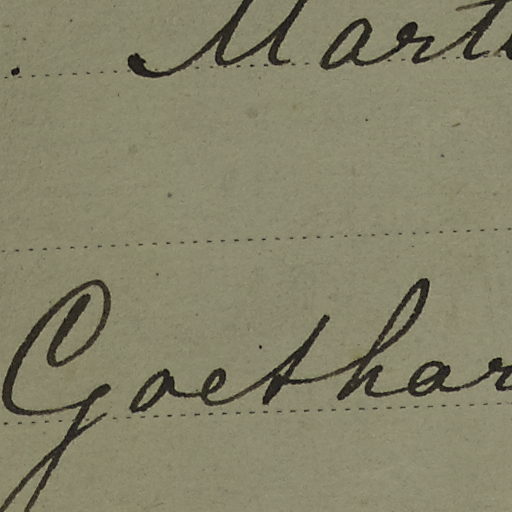 . Mart
Goethar